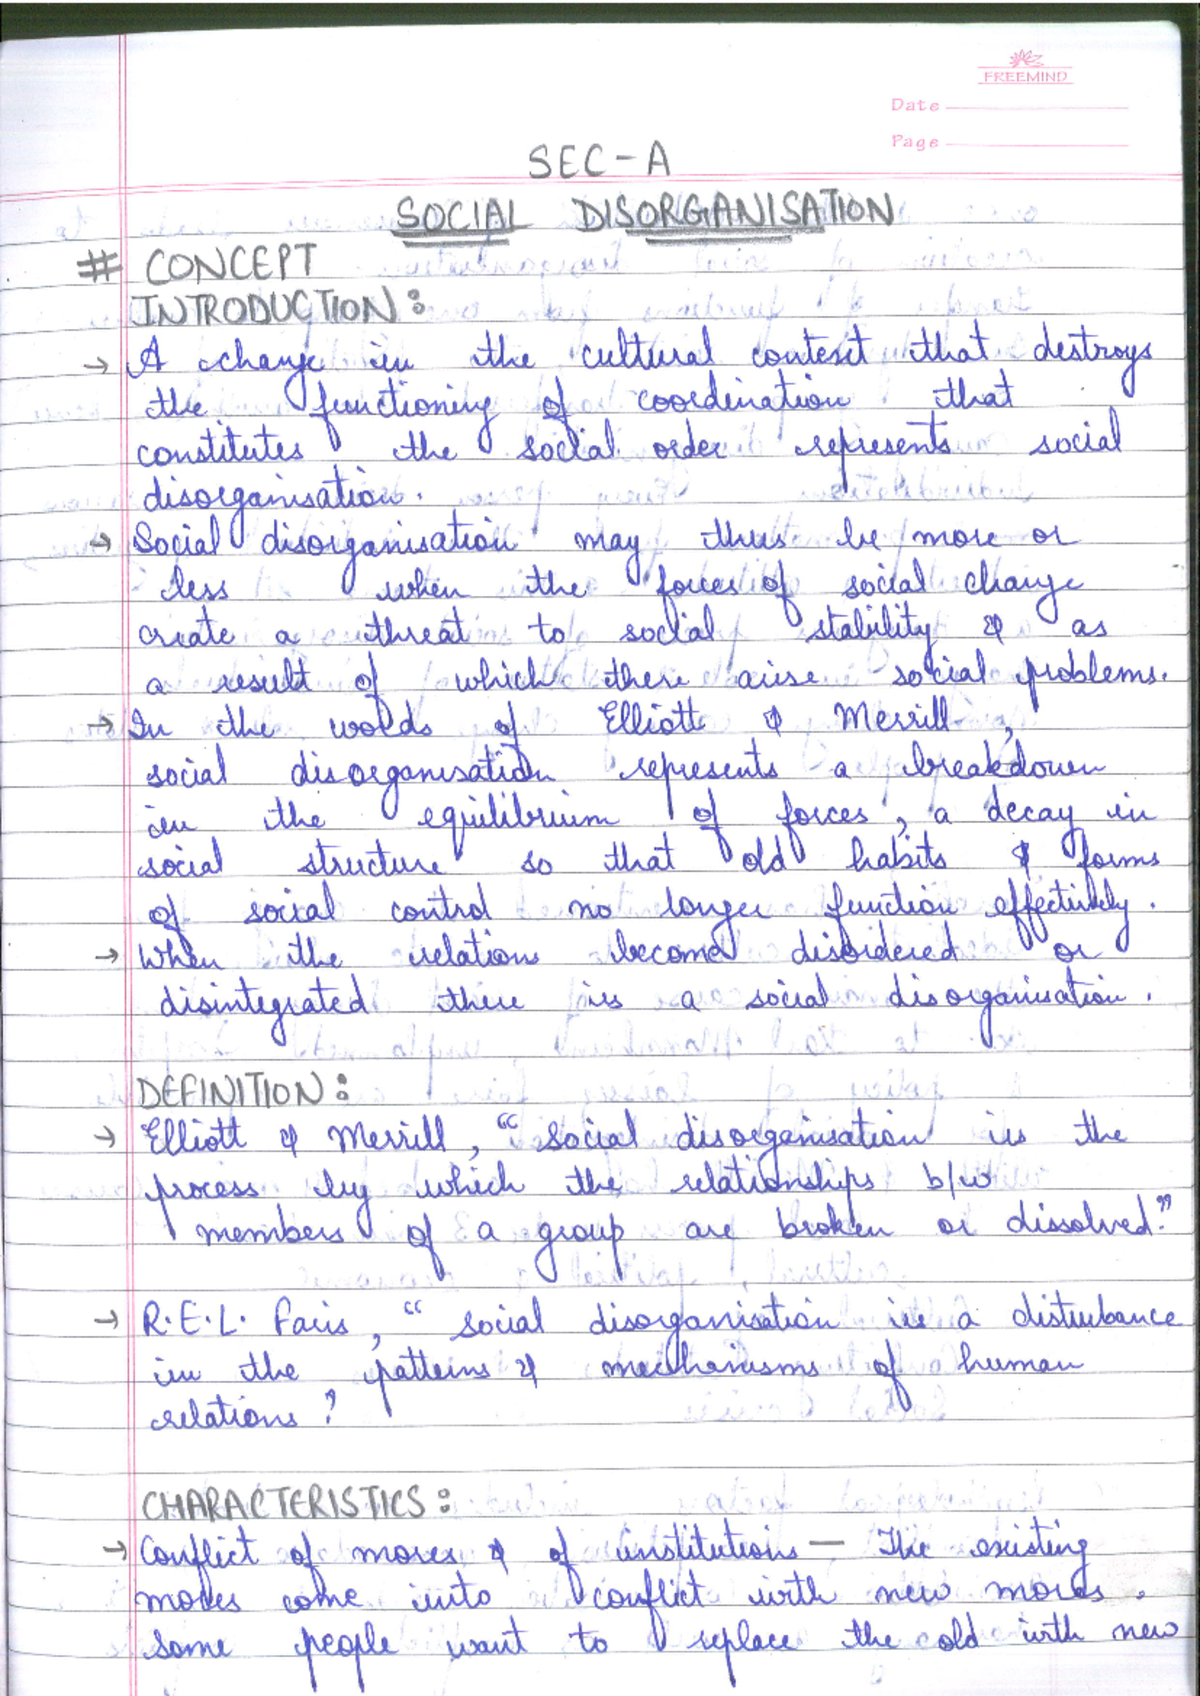 FREEMIND
Date
Page
SEC-A
SOCIAL DISORGANISATION
# CONCEPT
INTRODUCTION:
→ A change in the cultural context that destroys
the functioning of coordination that
constitutes the social order represents social
disorganisation.
→ Social disorganisation may thus be more or
less when the forces of social change
create a threat to social stability & as
a result of which there arise social problems.
→ In the words of Elliott & Merrill,
social disorganisation represents a breakdown
in the equilibrium of forces, a decay in
social structure so that old habits & forms
of social control no longer function effectively.
→ When the relations become disordered or
disintegrated there is a social disorganisation.
DEFINITION:
→ Elliott & Merrill, "social disorganisation is the
process by which the relationships b/w
members of a group are broken or dissolved."
→ R.E.L. Faris, "social disorganisation is a disturbance
in the patterns & mechanisms of human
relations"
CHARACTERISTICS:
→ Conflict of mores & of institutions — The existing
mores come into conflict with new mores.
some people want to replace the old with new